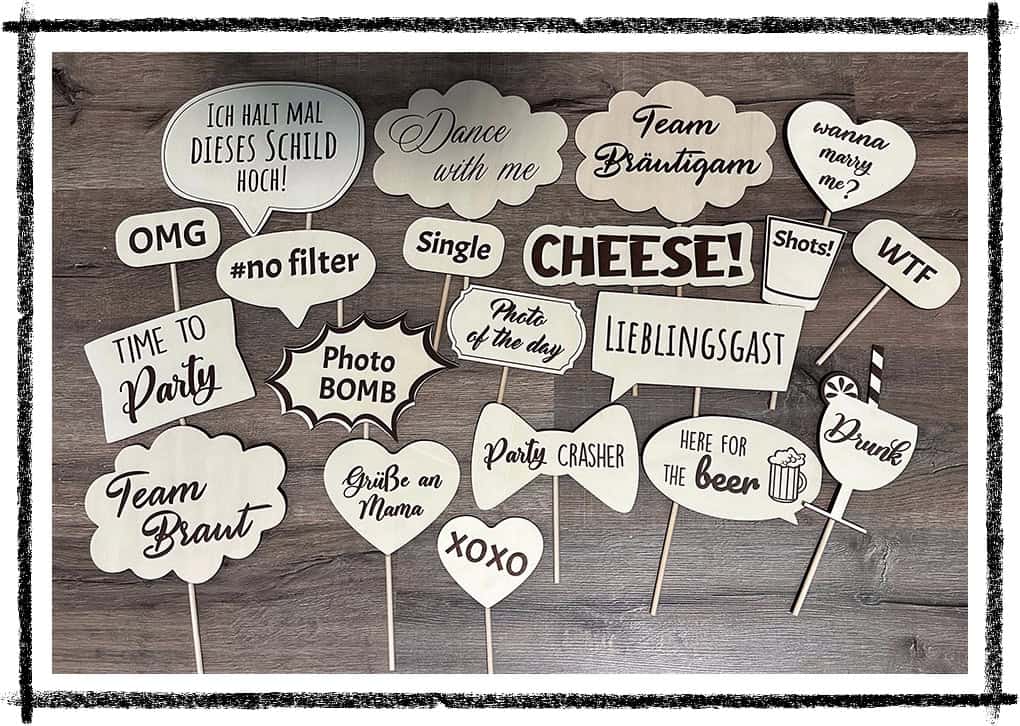 ICH HALT MAL
DIESES SCHILD
HOCH!
Dance
with me
Team
Bräutigam
wanna
marry
me?
OMG
#no filter
Single
CHEESE!
Shots!
WTF
TIME TO
Party
Photo
BOMB
Photo
of the day
LIEBLINGSGAST
Team
Braut
Grüße an
Mama
Party CRASHER
HERE FOR
THE beer
Drunk
XOXO